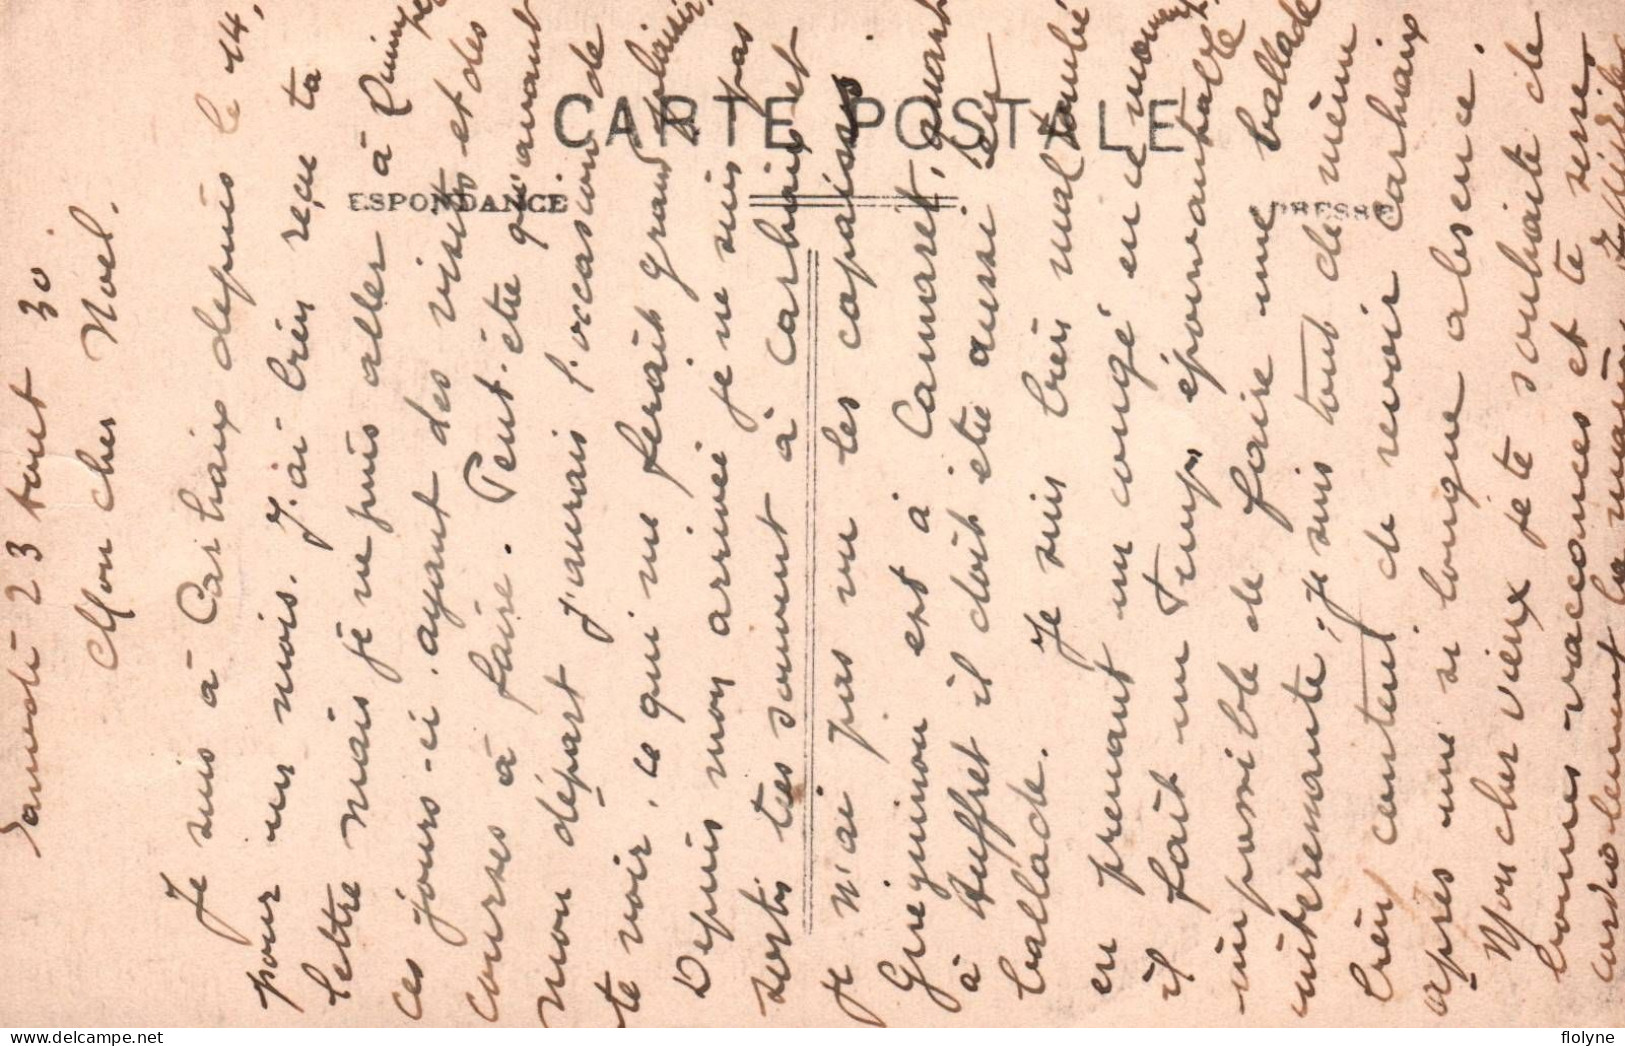 CARTE POSTALE
ESPONDANCE
DRESSE
Samedi 23 aout 30
Mon cher Noel.
Je suis à Carhaix depuis le 14,
pour un mois. J'ai bien reçu ta
lettre mais je ne puis aller à
ces jours-ci, ayant des visites et des
courses à faire. Peut-être qu'avant
mon départ j'aurais l'occasion de
te voir, ce qui me ferait grand plaisir.
Depuis mon arrivée je ne suis pas
sorti très souvent à Carhaix et
je n'ai pas vu les copains
Grégimou est à Camaret, quant
à Auffret il doit être aussi en
ballade. Je suis bien mal tombé
en prenant un congé en ce moment,
il fait un temps épouvantable
impossible de faire une ballade
intéressante, je suis tout de même
bien content de revoir Carhaix
après une si longue absence.
Mon cher vieux je te souhaite de
bonnes vaccances et te serre
cordialement la main
delcampe.net
flolyne